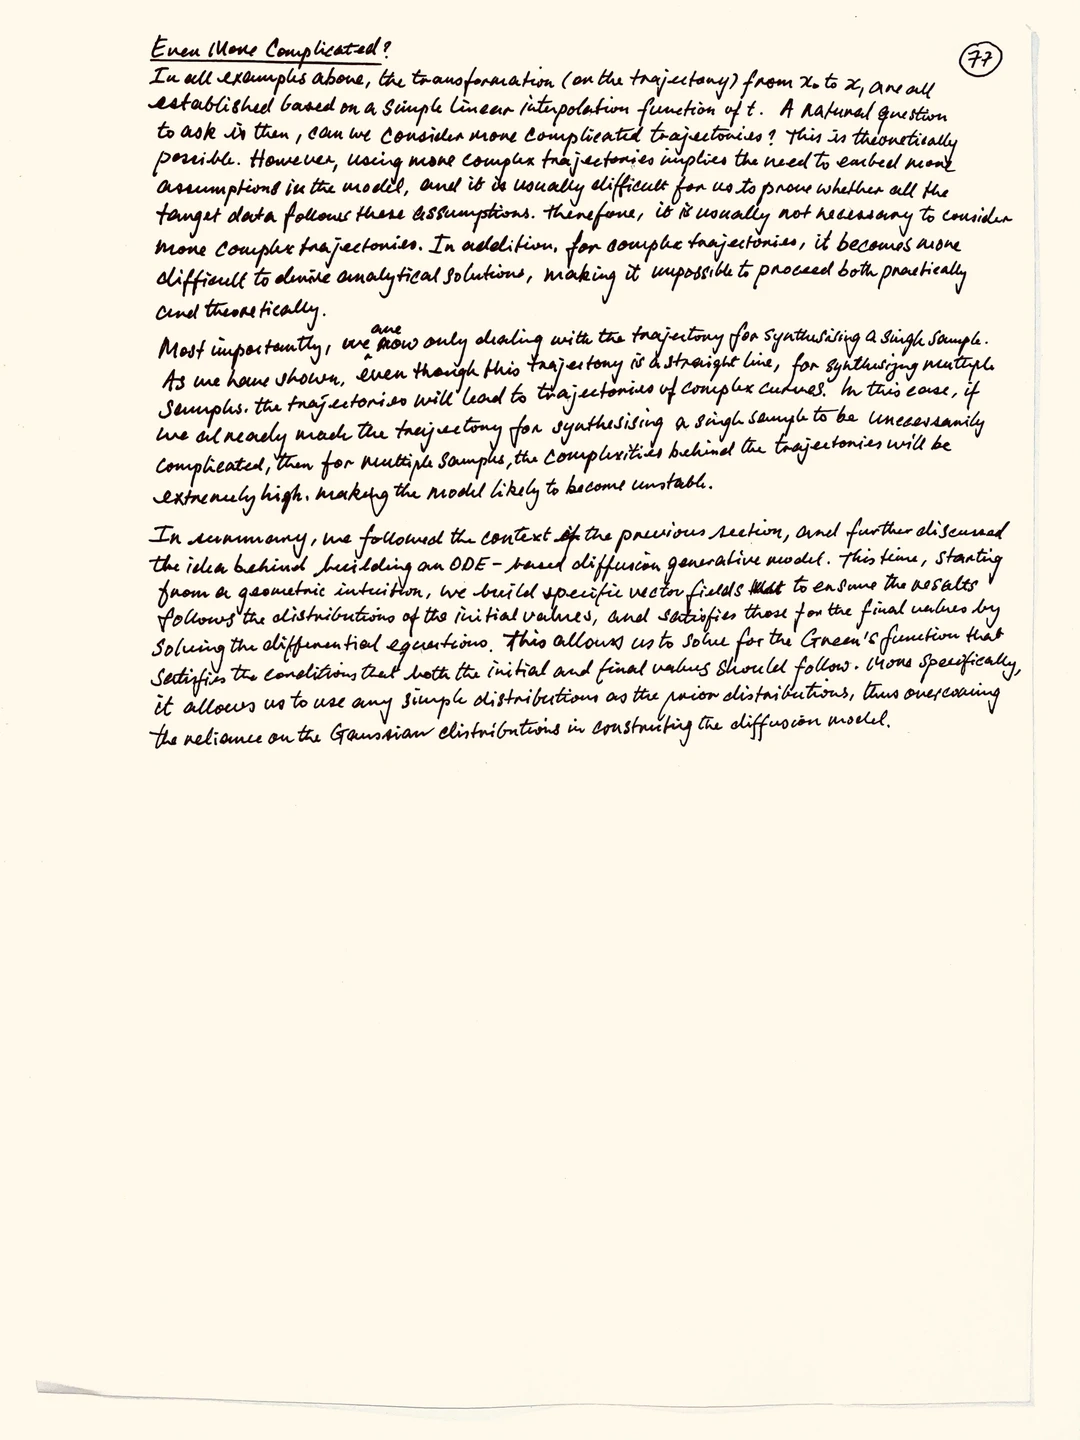 Even More Complicated?
77
In all examples above, the transformation (or the trajectory) from x₀ to x₁ are all
established based on a simple linear interpolation function of t. A natural question
to ask is then, can we consider more complicated trajectories? This is theoretically
possible. However, using more complex trajectories implies the need to embed more
assumptions in the model, and it is usually difficult for us to prove whether all the
target data follows these assumptions. Therefore, it is usually not necessary to consider
more complex trajectories. In addition, for complex trajectories, it becomes more
difficult to derive analytical solutions, making it impossible to proceed both practically
and theoretically.
Most importantly, we are now only dealing with the trajectory for synthesising a single sample.
As we have shown, even though this trajectory is a straight line, for synthesizing multiple
samples. the trajectories will lead to trajectories of complex curves. In this case, if
we already made the trajectory for synthesising a single sample to be unnecessarily
complicated, then for multiple samples, the complexities behind the trajectories will be
extremely high. making the model likely to become unstable.
In summary, we followed the context of the previous section, and further discussed
the idea behind building an ODE-based diffusion generative model. This time, starting
from a geometric intuition, we build specific vector fields to ensure the results
follows the distributions of the initial values, and satisfies those for the final values by
solving the differential equations. This allows us to solve for the Green's function that
satisfies the conditions that both the initial and final values should follow. More specifically,
it allows us to use any simple distributions as the prior distributions, thus overcoming
the reliance on the Gaussian distributions in constructing the diffusion model.